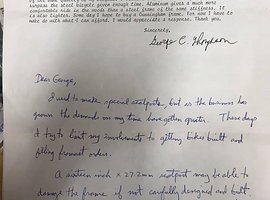 surpass the steel bicycle given enough time. Aluminum gives a much more
comfortable ride in the woods than a steel frame of the same stiffness. It
is also lighter. Some day I hope to buy a Cunningham frame. For now I have to
make do with what I can afford. I would appreciate a response. Thank you.
Sincerely,
George C.
Dear George,
I used to make special seatposts, but as the business has
grown the demands on my time have gotten greater. These days
I try to limit my involvements to getting bikes built and
filling frameset orders.
A sixteen inch x 27.2mm seatpost may be able to
damage the frame if not carefully designed and built